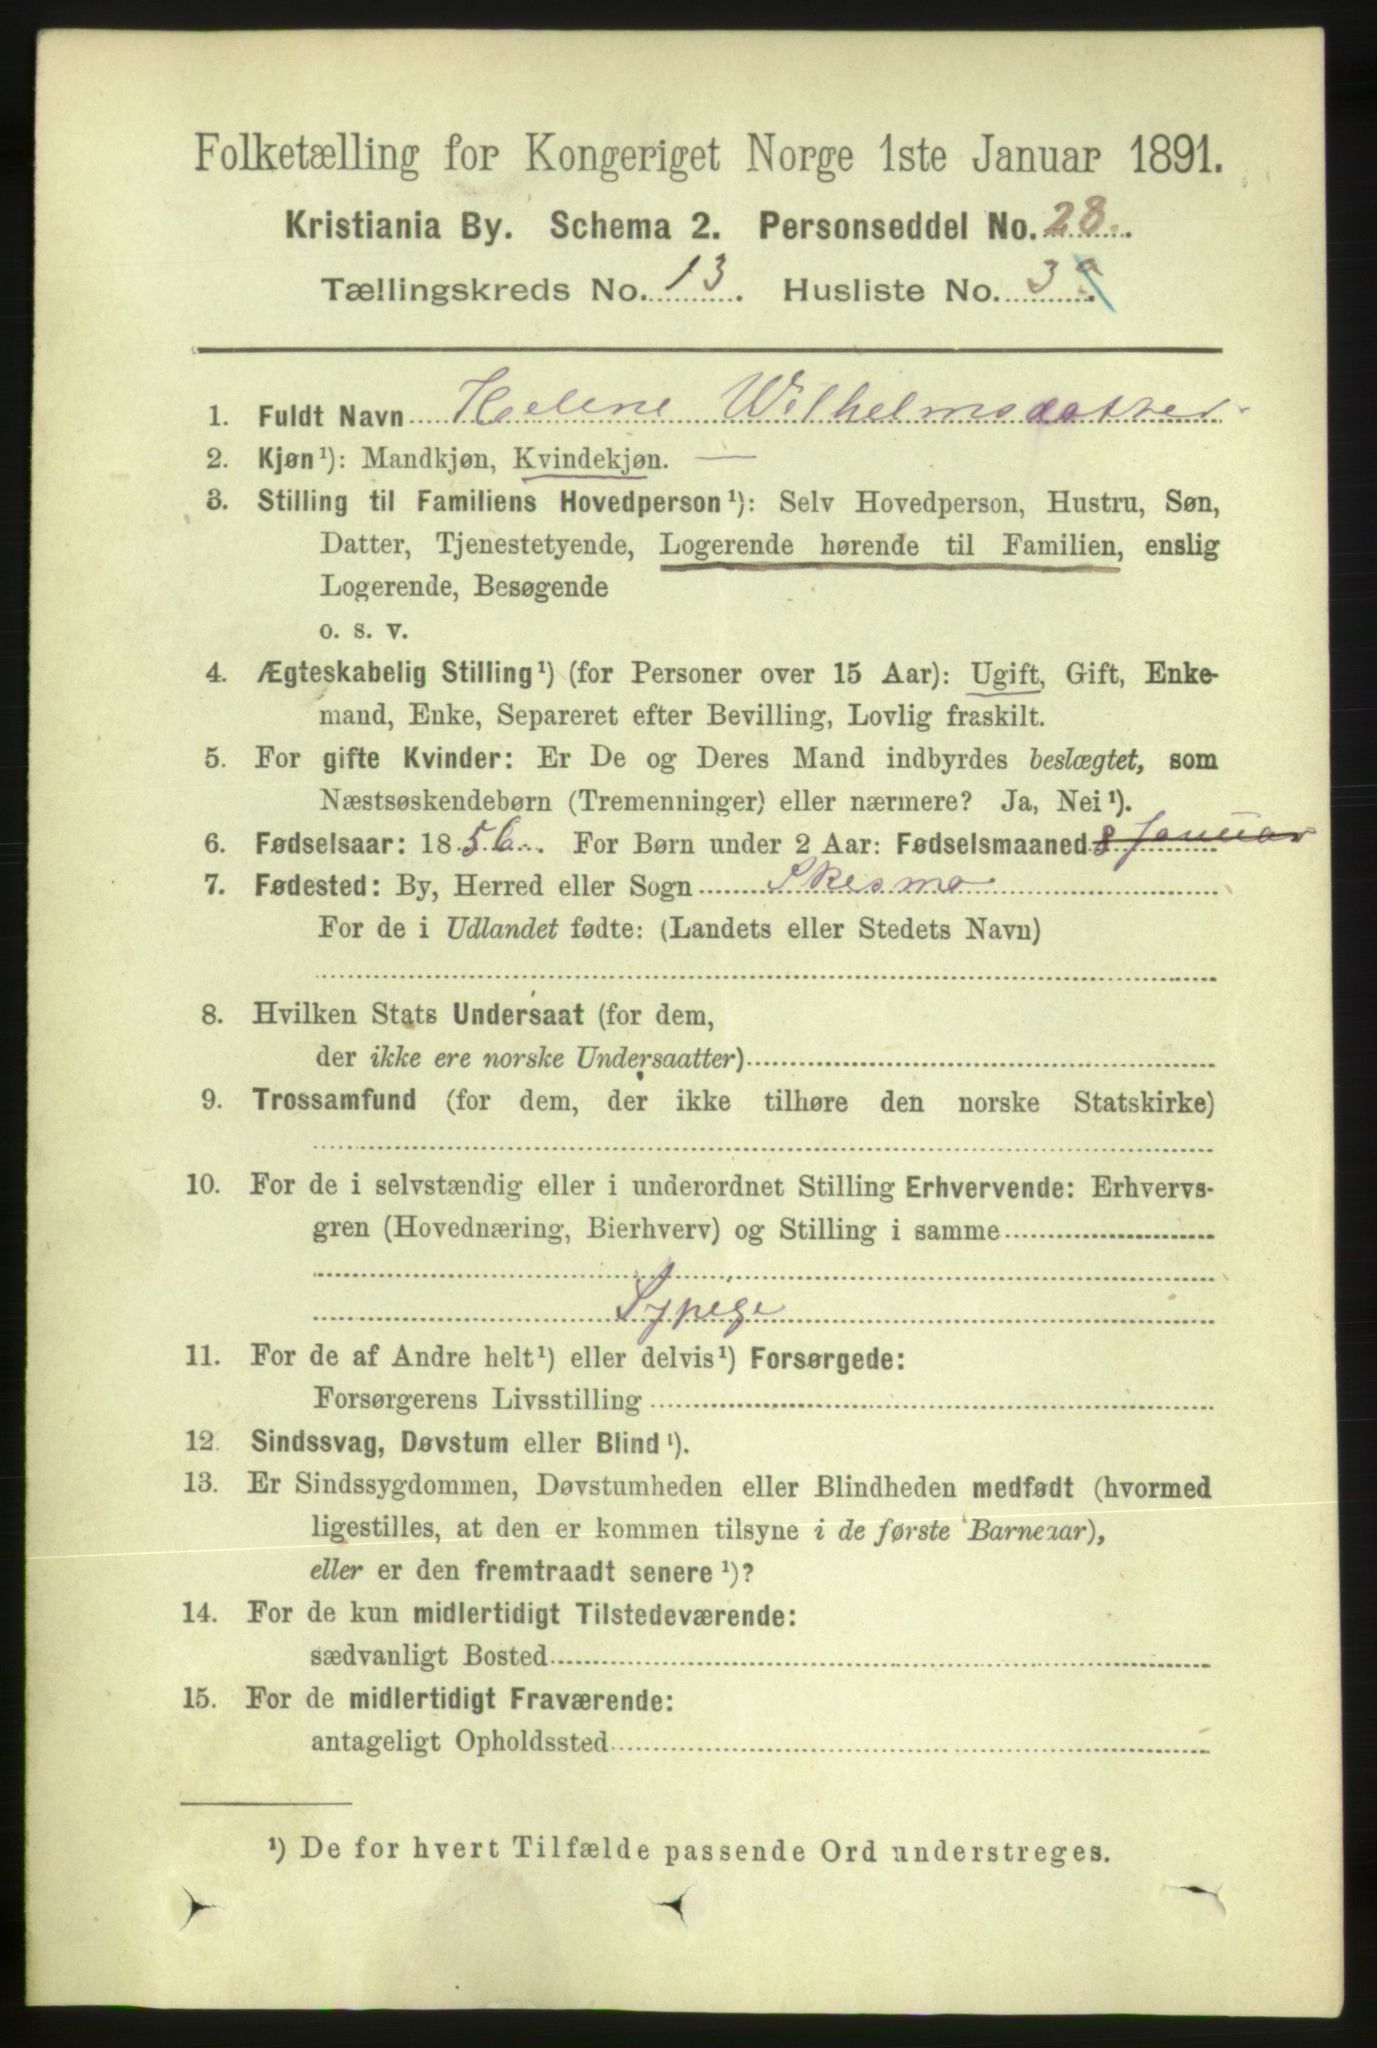 Folketælling for Kongeriget Norge 1ste Januar 1891.
Kristiania By. Schema 2. Personseddel No. 28.
Tællingskreds No. 13. Husliste No. 39.
1. Fuldt Navn Helene Wilhelmsdatter
2. Kjøn¹): Mandkjøn, Kvindekjøn. —
3. Stilling til Familiens Hovedperson¹): Selv Hovedperson, Hustru, Søn,
Datter, Tjenestetyende, Logerende hørende til Familien, enslig
Logerende, Besøgende
o. s. v.
4. Ægteskabelig Stilling¹) (for Personer over 15 Aar): Ugift, Gift, Enke-
mand, Enke, Separeret efter Bevilling, Lovlig fraskilt.
5. For gifte Kvinder: Er De og Deres Mand indbyrdes beslægtet, som
Næstsøskendebørn (Tremenninger) eller nærmere? Ja, Nei¹).
6. Fødselsaar: 1856. For Børn under 2 Aar: Fødselsmaaned 8 Januar
7. Fødested: By, Herred eller Sogn Skesmo
For de i Udlandet fødte: (Landets eller Stedets Navn)
8. Hvilken Stats Undersaat (for dem,
der ikke ere norske Undersaatter)
9. Trossamfund (for dem, der ikke tilhøre den norske Statskirke)
10. For de i selvstændig eller i underordnet Stilling Erhvervende: Erhvervs-
gren (Hovednæring, Bierhverv) og Stilling i samme
Sypige
11. For de af Andre helt¹) eller delvis¹) Forsørgede:
Forsørgerens Livsstilling
12. Sindssvag, Døvstum eller Blind¹).
13. Er Sindssygdommen, Døvstumheden eller Blindheden medfødt (hvormed
ligestilles, at den er kommen tilsyne i de første Barneaar),
eller er den fremtraadt senere¹)?
14. For de kun midlertidigt Tilstedeværende:
sædvanligt Bosted
15. For de midlertidigt Fraværende:
antageligt Opholdssted
¹) De for hvert Tilfælde passende Ord understreges.